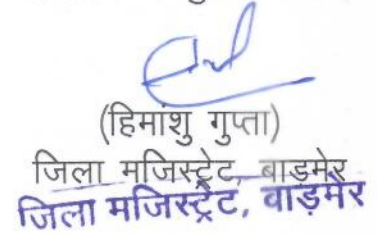 (हिमांशु गुप्ता)
जिला मजिस्ट्रेट, बाडमेर
जिला मजिस्ट्रेट, बाड़मेर